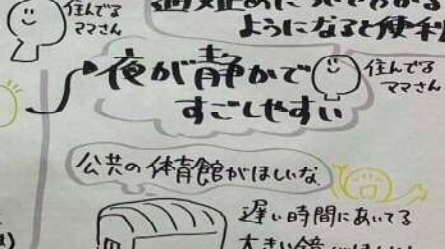 住んでる
ママさん
ようになると便利
夜が静かで
すごしやすい
住んでる
ママさん
公共の体育館がほしいな
遅い時間にあいてる